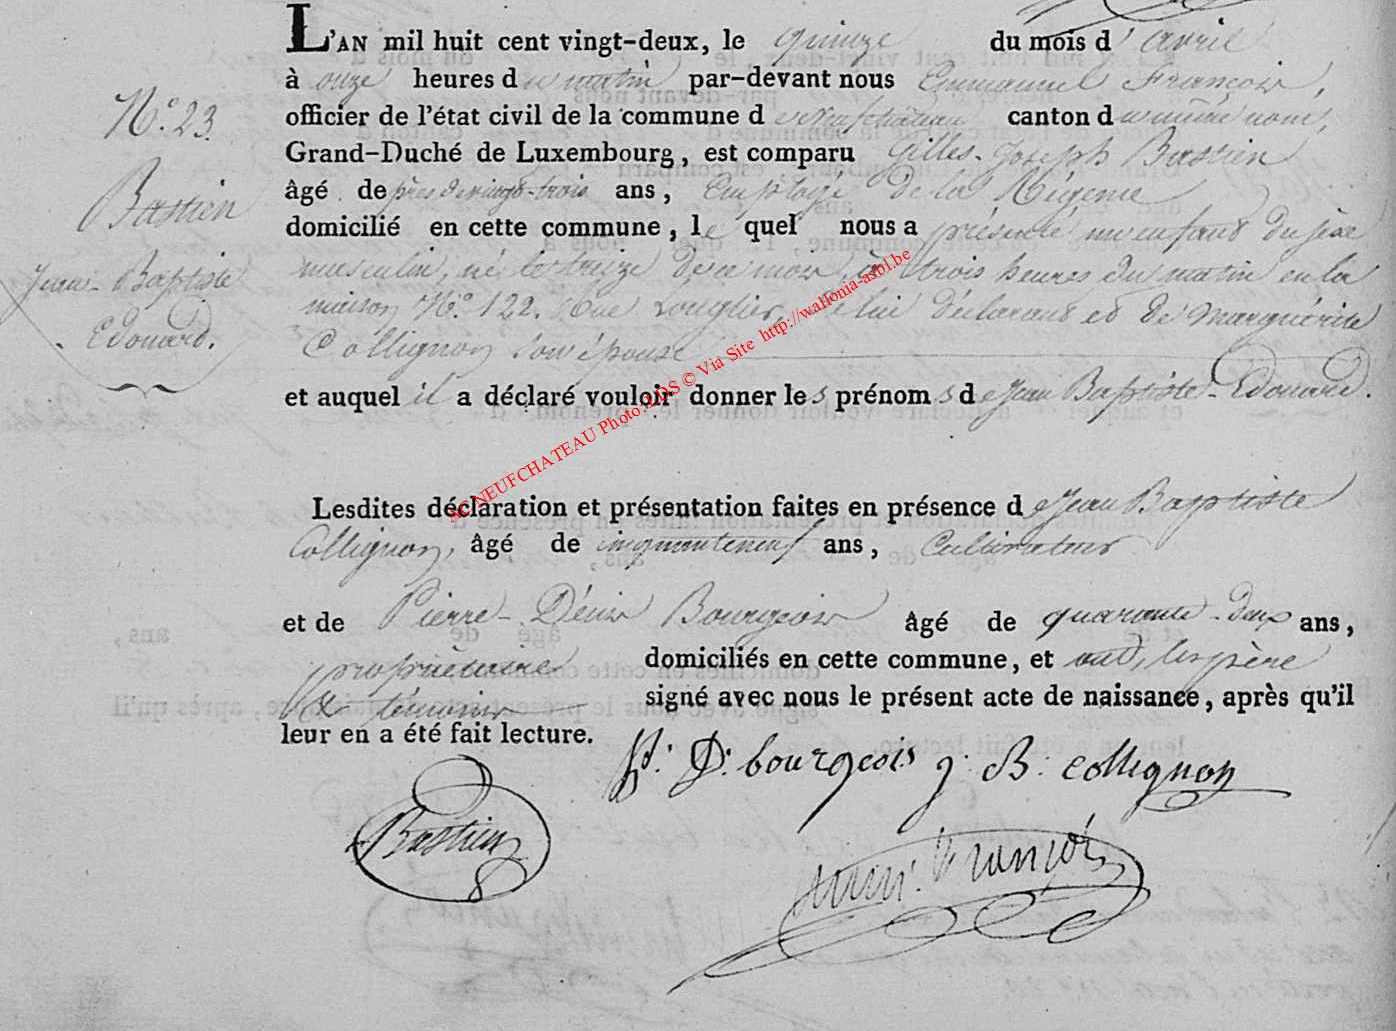 L'AN mil huit cent vingt-deux, le quinze du mois d'avril
à onze heures du matin par-devant nous Emmanuel François,
officier de l'état civil de la commune de Neufchâteau canton du même nom,
Grand-Duché de Luxembourg, est comparu Gilles-Joseph Bastien
âgé de près de vingt-trois ans, Employé de la Régence
domicilié en cette commune, lequel nous a présenté un enfant du sexe
masculin, né le treize de ce mois, à trois heures du matin en la
maison N.o 122. rue Longlier, de lui déclarant et de Marguérite
Collignon son épouse
et auquel il a déclaré vouloir donner les prénoms de Jean Baptiste-Edouard.
N.o 23.
Bastien
Jean-Baptiste
Edouard.
Lesdites déclaration et présentation faites en présence de Jean Baptiste
Collignon, âgé de cinquanteneuf ans, Cultivateur
et de Pierre-Dénis Bourgeois âgé de quarante-deux ans,
propriétaire domiciliés en cette commune, et ont, les père
& témoins signé avec nous le présent acte de naissance, après qu'il
leur en a été fait lecture.
P. D. bourgeois j. B. collignon
Bastien
François
AC NEUFCHATEAU Photo LDS © Via Site http://wallonia-asbl.be